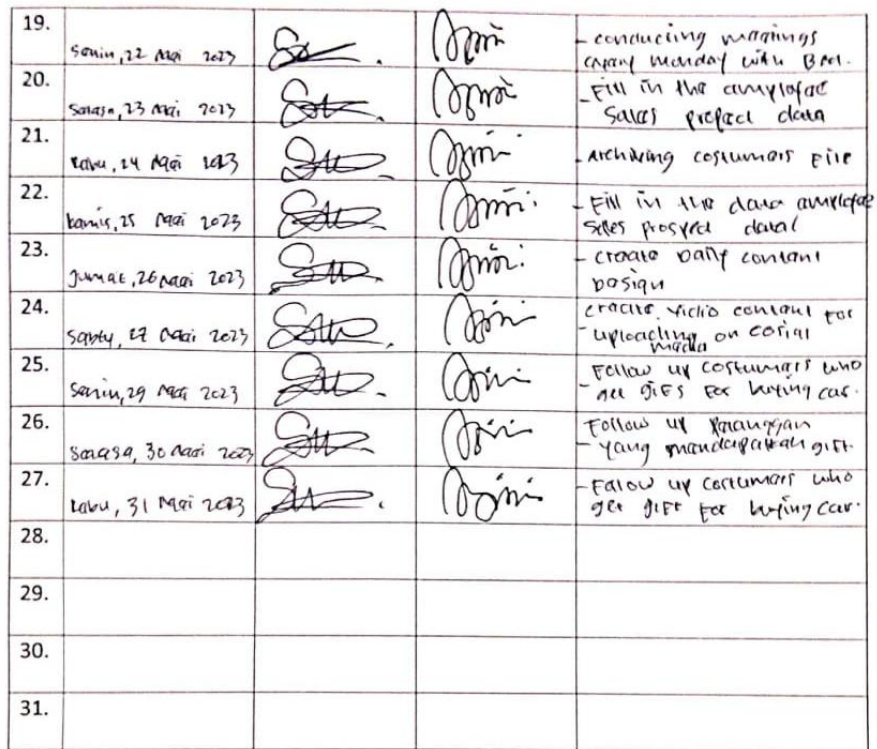 19.
Senin, 22 Mei 2023
- conducting meetings
every monday with
20.
Selasa, 23 Mei 2023
- Fill in the
sales data
21.
Rabu, 24 Mei 2023
- Archiving costumers File
22.
kamis, 25 Mei 2023
- Fill in the data
sales data
23.
Jumat, 26 Mei 2023
- create Daily content
Design
24.
Sabtu, 27 Mei 2023
create vidio content for
- uploading on cosial
media
25.
Senin, 29 Mei 2023
- Follow up costumers who
get gifs for buying car.
26.
Selasa, 30 Mei 2023
Follow up Pelanggan
- yang mendapatkan gift
27.
Rabu, 31 Mei 2023
- Follow up costumers who
get gift for buying car.
28.
29.
30.
31.